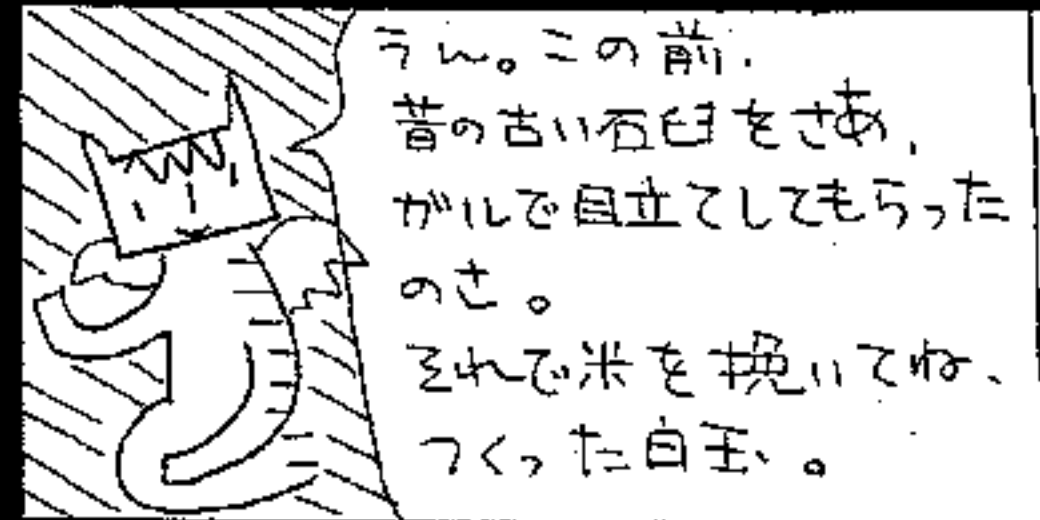 うん。この前.
昔の古い石臼をさあ、
ガルで目立てしてもらった
のさ。
それで米を挽いてね、
つくった白玉。